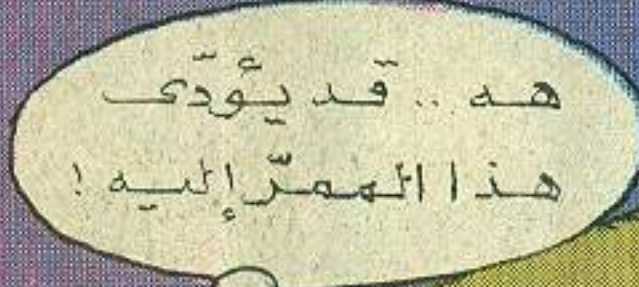 هه .. قد يؤدّى
هذا الممرّ إليه !